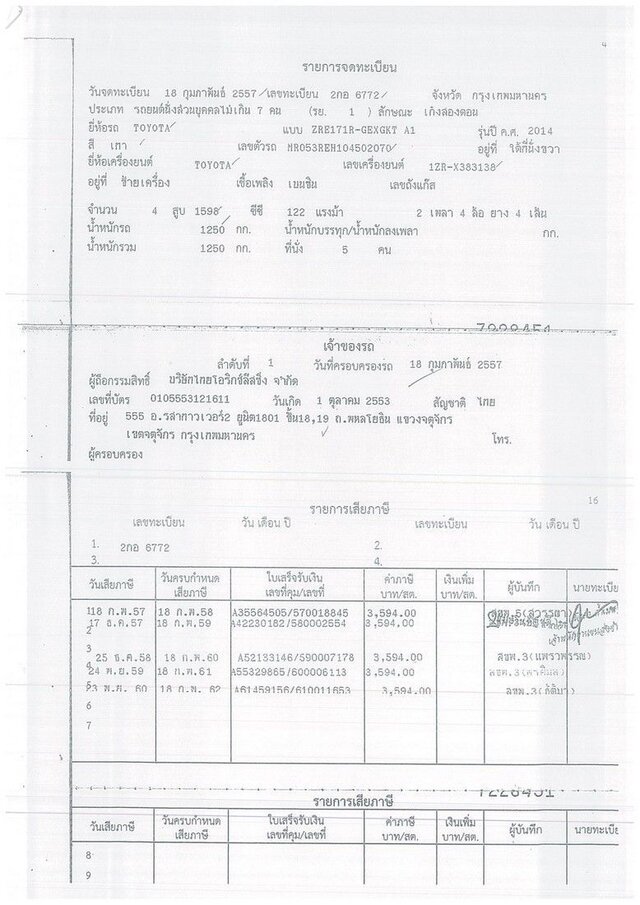 4
รายการจดทะเบียน
วันจดทะเบียน 18 กุมภาพันธ์ 2557 เลขทะเบียน 2กอ 6772 จังหวัด กรุงเทพมหานคร
ประเภท รถยนต์นั่งส่วนบุคคลไม่เกิน 7 คน (รย. 1 ) ลักษณะ เก๋งสองตอน
ยี่ห้อรถ TOYOTA แบบ ZRE171R-GEXGKT A1 รุ่นปี ค.ศ. 2014
สี เทา เลขตัวรถ MR053REH104502070 อยู่ที่ ใต้ที่นั่งขวา
ยี่ห้อเครื่องยนต์ TOYOTA เลขเครื่องยนต์ 1ZR-X383138
อยู่ที่ ซ้ายเครื่อง เชื้อเพลิง เบนซิน เลขถังแก๊ส
จำนวน 4 สูบ 1598 ซีซี 122 แรงม้า 2 เพลา 4 ล้อ ยาง 4 เส้น
น้ำหนักรถ 1250 กก. น้ำหนักบรรทุก/น้ำหนักลงเพลา กก.
น้ำหนักรวม 1250 กก. ที่นั่ง 5 คน
7228451
เจ้าของรถ
ลำดับที่ 1 วันที่ครอบครองรถ 18 กุมภาพันธ์ 2557
ผู้ถือกรรมสิทธิ์ บริษัทไทยโอริกซ์ลีสซิ่ง จำกัด
เลขที่บัตร 0105553121611 วันเกิด 1 ตุลาคม 2553 สัญชาติ ไทย
ที่อยู่ 555 อ.รสาทาวเวอร์2 ยูนิต1801 ชั้น18,19 ถ.พหลโยธิน แขวงจตุจักร
เขตจตุจักร กรุงเทพมหานคร โทร.
ผู้ครอบครอง
16
รายการเสียภาษี
เลขทะเบียน วัน เดือน ปี เลขทะเบียน วัน เดือน ปี
1. 2กอ 6772 2.
3. 4.
วันเสียภาษี วันครบกำหนดเสียภาษี ใบเสร็จรับเงิน เลขที่คุม/เลขที่ ค่าภาษี บาท/สต. เงินเพิ่ม บาท/สต. ผู้บันทึก นายทะเบีย
1 18 ก.พ.57 18 ก.พ.58 A35564505/570018845 3,594.00
17 ธ.ค.57 18 ก.พ.59 A42230182/580002554 3,594.00
2
3
25 ธ.ค.58 18 ก.พ.60 A52133146/590007178 3,594.00 สขพ.3(แพราพรรณ)
4
24 พ.ย.59 18 ก.พ.61 A55329865/600006113 3,594.00 สขพ.3
5
23 พ.ย. 60 18 ก.พ. 62 A61459156/610011653 3,594.00 สขพ.3
6
7
7228451
รายการเสียภาษี
วันเสียภาษี วันครบกำหนดเสียภาษี ใบเสร็จรับเงิน เลขที่คุม/เลขที่ ค่าภาษี บาท/สต. เงินเพิ่ม บาท/สต. ผู้บันทึก นายทะเบีย
8
9